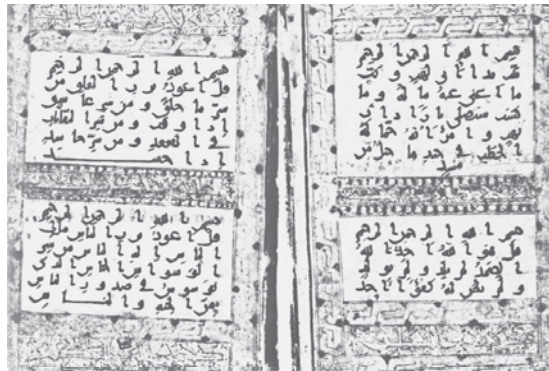 بسم الله الرحمن الرحيم
تبت يدا ابى لهب و تب
ما اغنى عنه ماله و ما
كسب سيصلى نارا ذات
لهب و امراته حمالة
الحطب فى جيدها حبل من
مسد
بسم الله الرحمن الرحيم
قل هو الله احد الله
الصمد لم يلد و لم يولد
و لم يكن له كفوا احد
بسم الله الرحمن الرحيم
قل اعوذ برب الفلق من
شر ما خلق و من شر غاسق
اذا وقب و من شر النفثت
فى العقد و من شر حاسد
اذا حسد
بسم الله الرحمن الرحيم
قل اعوذ برب الناس ملك
الناس اله الناس من شر
الوسواس الخناس الذى
يوسوس فى صدور الناس
من الجنة و الناس